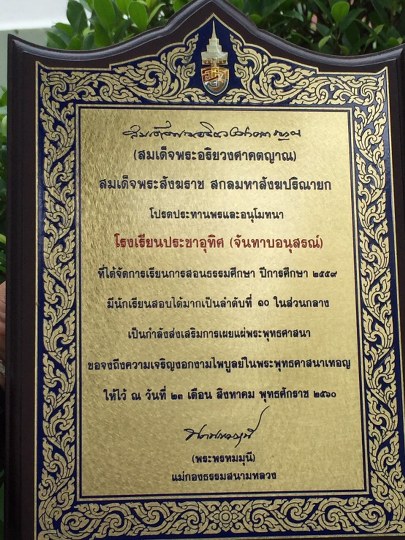 สมเด็จพระอริยวงศาคตญาณ
(สมเด็จพระอริยวงศาคตญาณ)
สมเด็จพระสังฆราช สกลมหาสังฆปริณายก
โปรดประทานพรและอนุโมทนา
โรงเรียนประชาอุทิศ (จันทาบอนุสรณ์)
ที่ได้จัดการเรียนการสอนธรรมศึกษา ปีการศึกษา ๒๕๕๙
มีนักเรียนสอบได้มากเป็นลำดับที่ ๑๐ ในส่วนกลาง
เป็นกำลังส่งเสริมการเผยแผ่พระพุทธศาสนา
ขอจงถึงความเจริญงอกงามไพบูลย์ในพระพุทธศาสนาเทอญ
ให้ไว้ ณ วันที่ ๒๓ เดือน สิงหาคม พุทธศักราช ๒๕๖๐
(พระพรหมมุนี)
แม่กองธรรมสนามหลวง